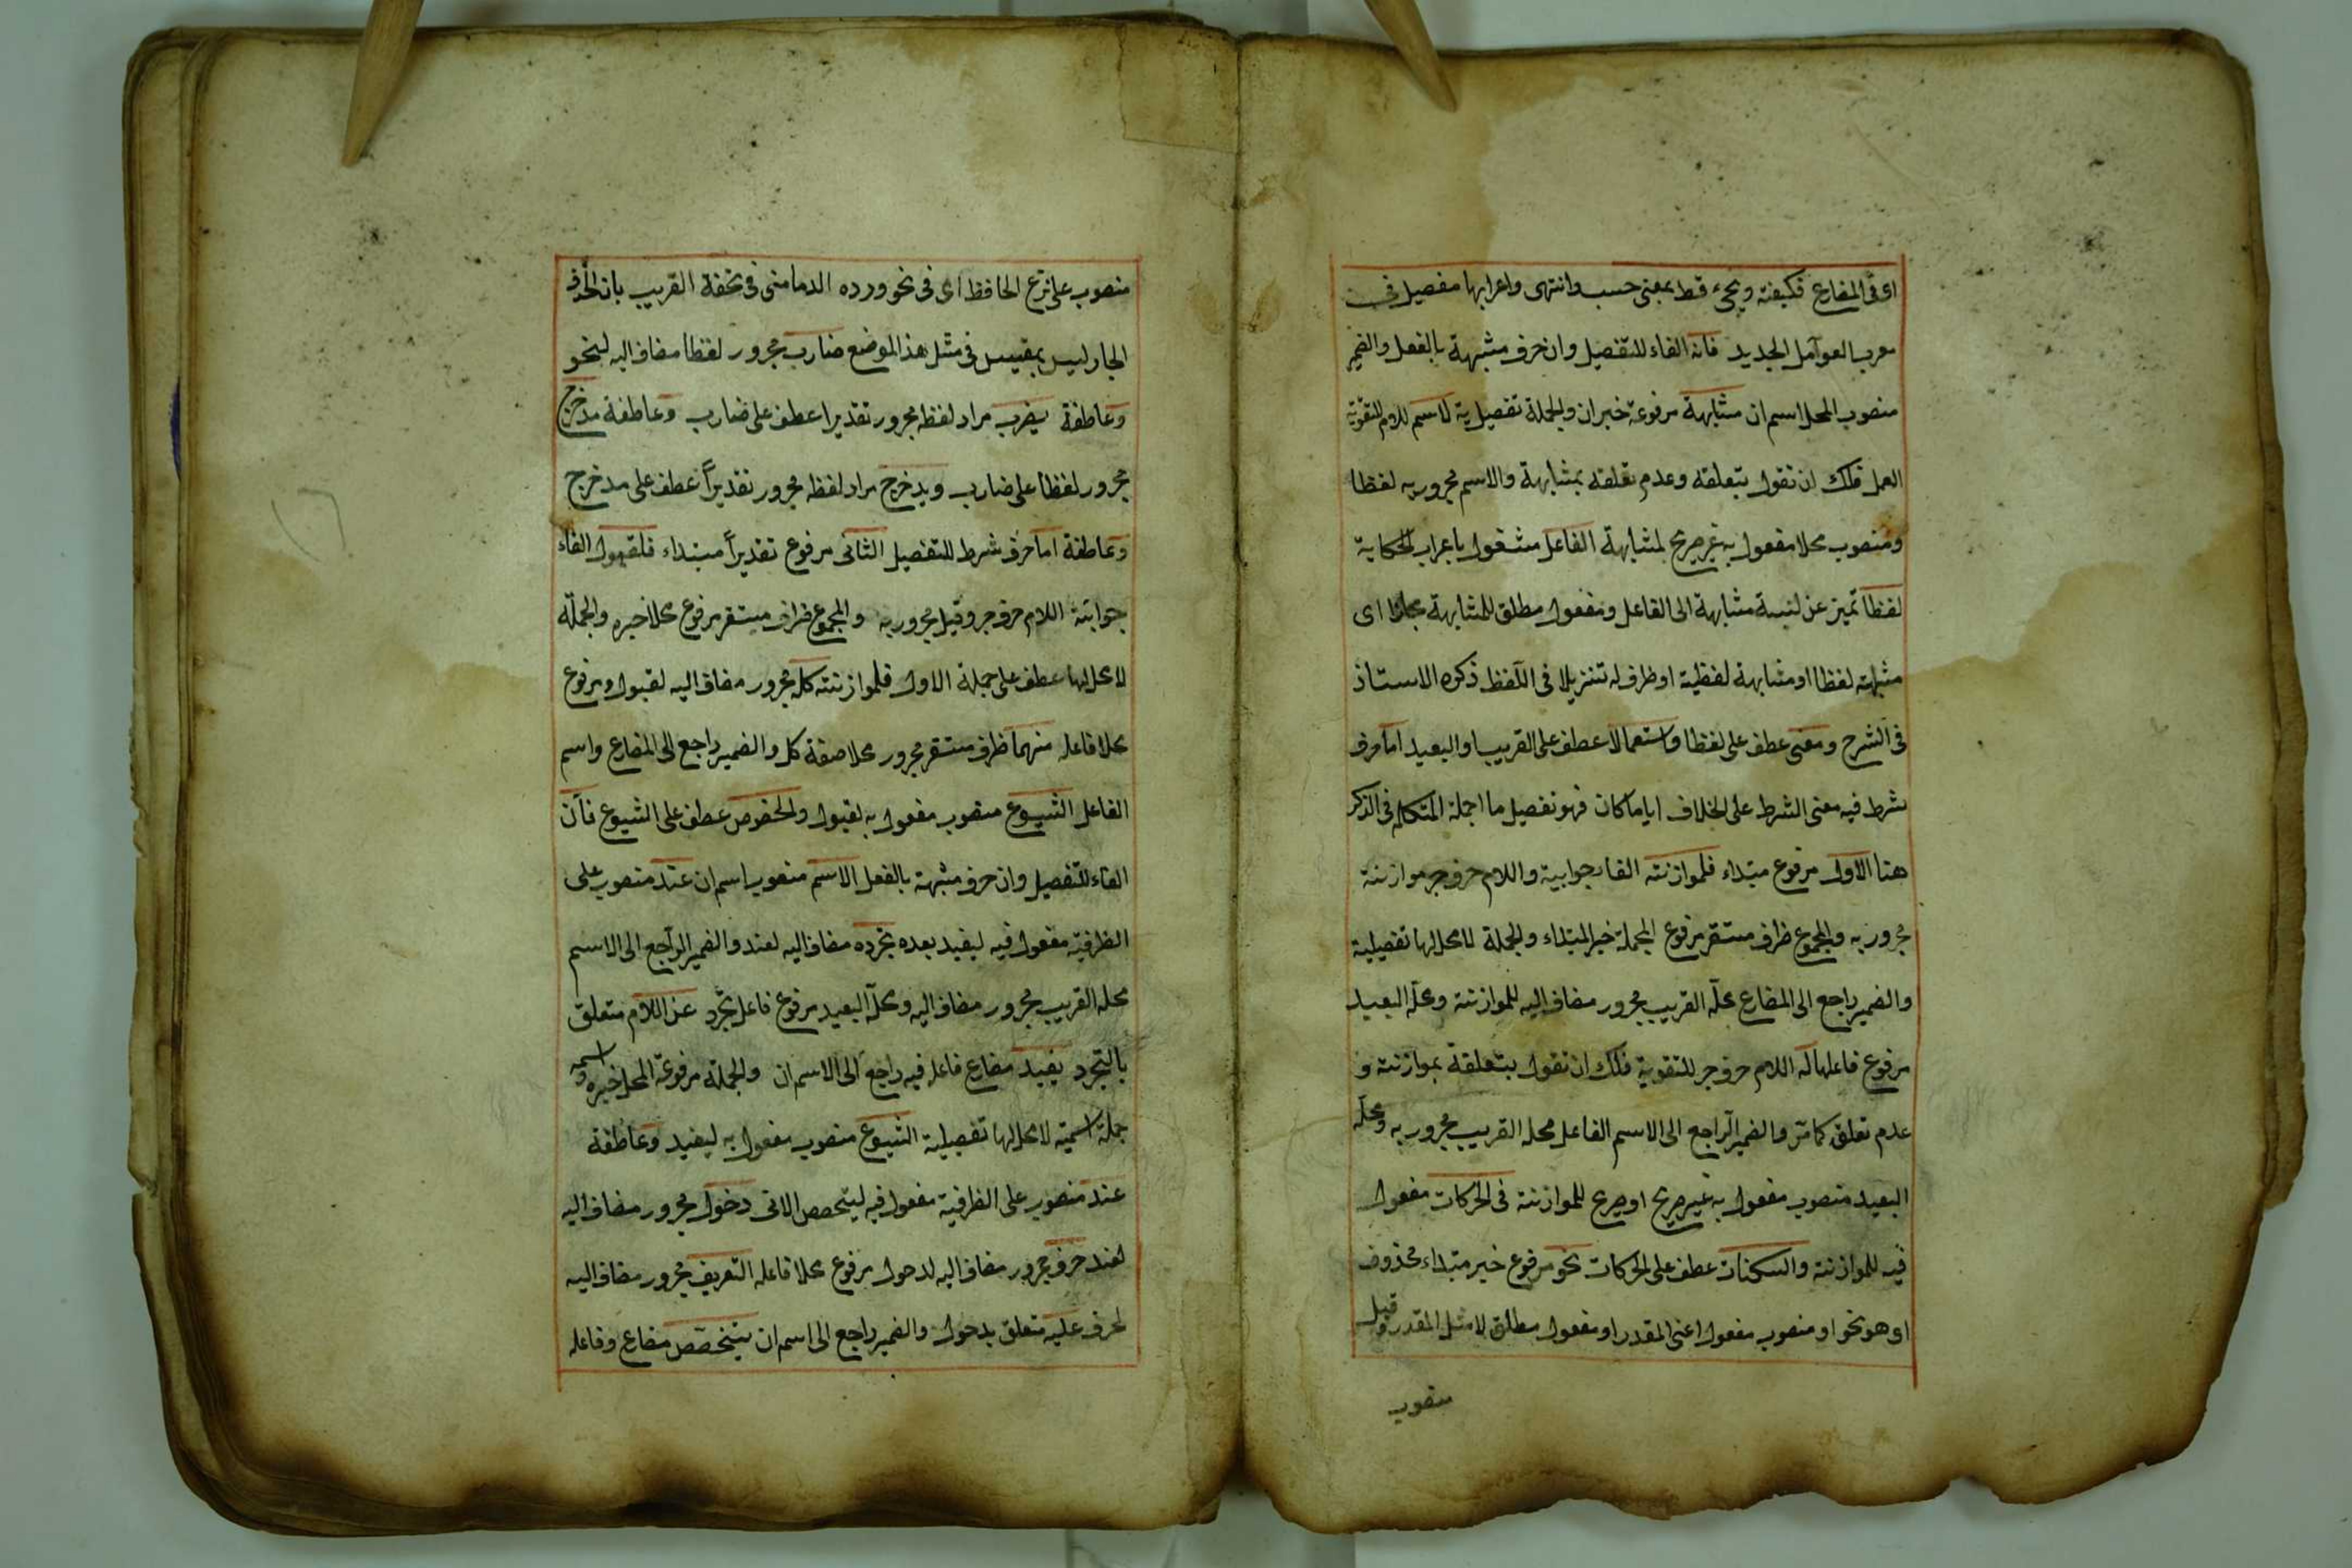 اى فى المضارع فكيفته ويجىء قط بمعنى حسب وانتهى واعرابها مفصيل فى
معرب العوامل الجديد فانه الفاء للتفصيل وان حرف مشبهة بالفعل والضمير
منصوب المحل اسم ان مشابهة مرفوعة خبر ان والجملة تفصيلية لاسم اللام لتقوية
العمل فلك ان تقول بتعلقه وعدم تعلقه بمشابهة والاسم مجرور به لفظا
ومنصوب محلا مفعول به غير صريح لمشابهة الفاعل مشغول باعراب الحكاية
لفظا تميز عن نسبة مشابهة الى الفاعل ومفعول مطلق للمشابهة مجازا اى
مشابهته لفظا او مشابهة لفظية او ظرف له تنزيلا فى اللفظ ذكره الاستاذ
فى الشرح ومعنى عطف على لفظا واستعمالا عطف على القريب او البعيد اما حرف
شرط فيه معنى الشرط على الخلاف اياما كان فهو تفصيل ما اجمله المتكلم فى الذكر
هنا الاول مرفوع مبتداء فلموازنته الفا جوابية واللام حرف جر موازنة
مجرور به والمجموع ظرف مستقر مرفوع المحل خبر المبتداء والجملة لا محل لها تفصيلية
والضمير راجع الى المضارع محله القريب مجرور مضاف اليه للموازنة ومحله البعيد
مرفوع فاعلها له اللام حرف جر للتقوية فلك ان تقول بتعلقة بموازنته و
عدم تعلق كما مر والضمير الراجع الى الاسم الفاعل محله القريب مجرور به ومحله
البعيد منصوب مفعول به غير صريح او صريح للموازنة فى الحركات مفعول
فيه للموازنة والسكنات عطف على الحركات نحو مرفوع خبر مبتداء محذوف
اى هو نحو او منصوب مفعول اعنى المقدر او مفعول مطلق لا مثل المقدر وقيل
منصوب
منصوب على نزع الخافظ اى فى نحو ورده الدمامنى فى تحفة القريب بان الحذف
الجار ليس بمقيس فى مثل هذ الموضع ضارب مجرور لفظا مضاف اليه لنحو
وعاطفة يضرب مراد لفظه مجرور تقديرا عطف على ضارب وعاطفة مدخرج
مجرور لفظا على ضارب ويدخرج مراد لفظه مجرور تقديراً عطف على مدخرج
وعاطفة اما حرف شرط للتفصيل الثانى مرفوع تقديراً مبتداء فلقبول الفاء
جوابية اللام حرف جر وقبل مجرور به والمجموع ظرف مستقر مرفوع محلا خبره والجملة
لا محل لها عطف على جملة الاول فلموازنته كل مجرور مضاف اليه لقبول ومرفوع
محلا فاعله منهما ظرف مستقر مجرور محلا صفة كل والضمير راجع الى المضارع واسم
الفاعل الشيوع منصوب مفعول به لقبول والخصوص عطف على الشيوع فان
الفاء للتفصيل وان حرف مشبهة بالفعل الاسم منصوب اسم ان عند منصوب على
الظرفية مفعول فيه ليفيد بعده تجرده مضاف اليه لعند والضمير الراجع الى الاسم
محله القريب مجرور مضاف اليه ومحله البعيد مرفوع فاعل تجرد عن اللام متعلق
بالتجرد يفيد مضارع فاعله فيه راجع الى الاسم ان والجملة مرفوعة المحل خبره واسمه
جملة اسمية لا محل لها تفصيلية الشيوع منصوب مفعول به ليفيد وعاطفة
عند منصوب على الظرفية مفعول فيه ليتخصص الاتى دخول مجرور مضاف اليه
لعند حرف مجرور مضاف اليه لدحول مرفوع محلا فاعله التعريف مجرور مضاف اليه
لحرف عليه متعلق بدحول والضمير راجع الى اسم ان يتخصص مضارع وفاعله